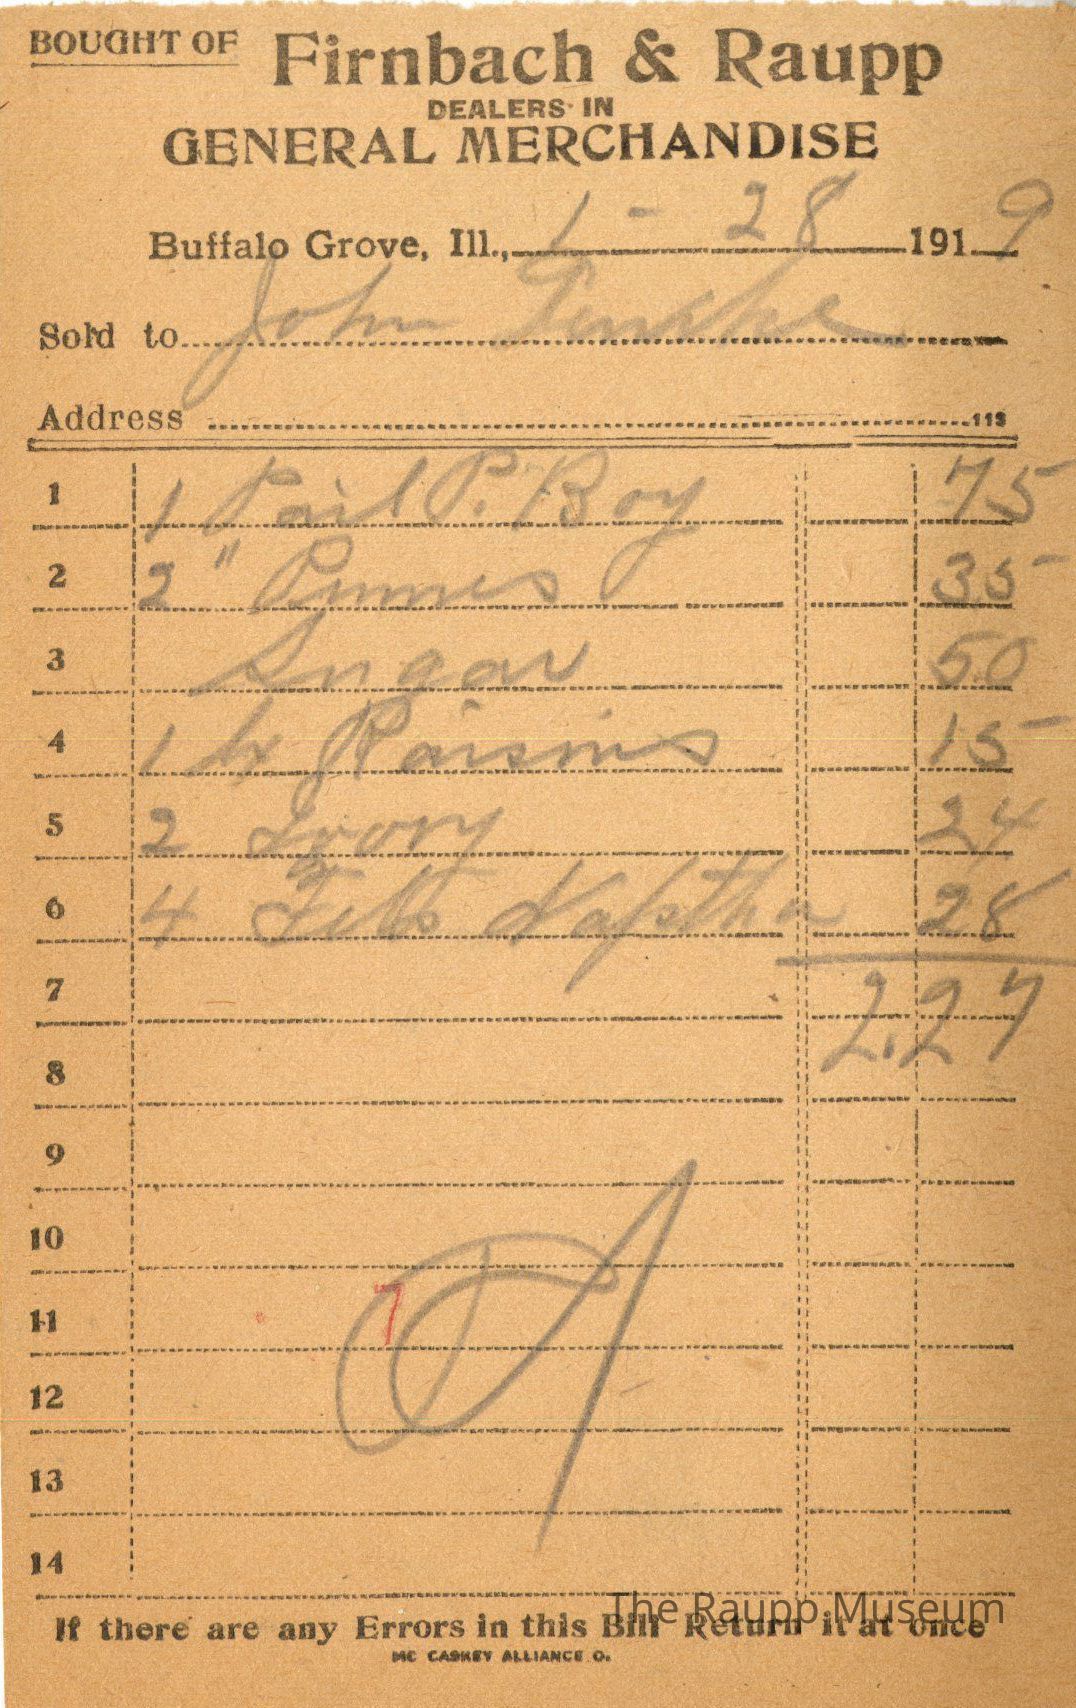 BOUGHT OF Firnbach & Raupp
DEALERS IN
GENERAL MERCHANDISE
Buffalo Grove, Ill., 1 - 28 1919
Sold to John
Address 113
1 1 Pail P. Boy 75
2 2 " Prunes 35
3 Sugar 50
4 1 lb Raisins 15
5 2 Ivory 24
6 4 Fels Naptha 28
7 2.27
8
9
10
11 7
12
13
14
The Raupp Museum
If there are any Errors in this Bill Return it at once
MC CASKEY ALLIANCE O.